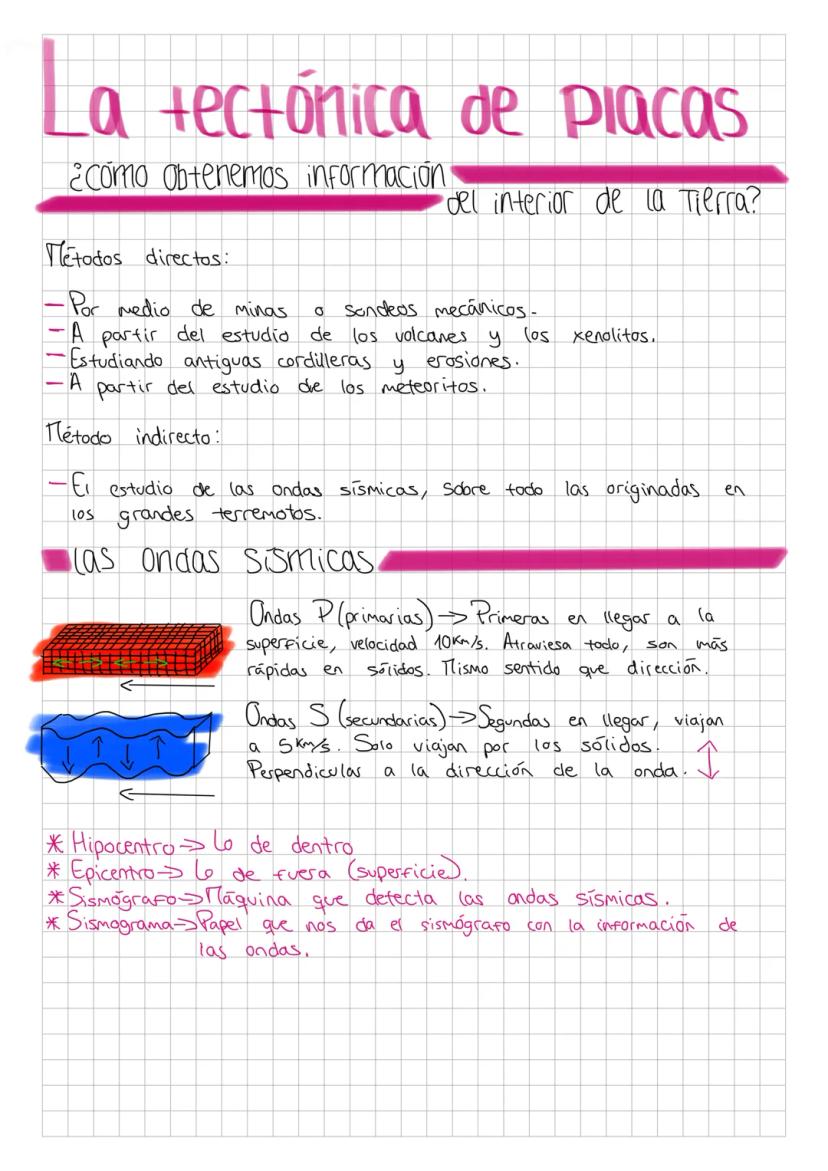 La tectónica de placas
¿cómo obtenemos información
del interior de la Tierra?
Métodos directos:
- Por medio de minas o sondeos mecánicos.
- A partir del estudio de los volcanes y los xenolitos.
- Estudiando antiguas cordilleras y erosiones.
- A partir del estudio de los meteoritos.
Método indirecto:
- El estudio de las ondas sísmicas, sobre todo las originadas en
los grandes terremotos.
las ondas sísmicas
Ondas P (primarias) → Primeras en llegar a la
superficie, velocidad 10km/s. Atraviesa todo, son más
rápidas en sólidos. Mismo sentido que dirección.
Ondas S (secundarias) → Segundas en llegar, viajan
a 5km/s. Solo viajan por los sólidos.
Perpendicular a la dirección de la onda.
* Hipocentro → lo de dentro
* Epicentro → lo de fuera (superficie).
* Sismógrafo → Máquina que detecta las ondas sísmicas.
* Sismograma → Papel que nos da el sismógrafo con la información de
las ondas.